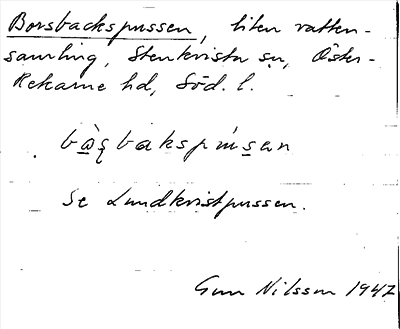 Borsbackspussen, liten vatten-
samling, Stenkvista sn, Öster-
Rekarne hd, Söd. l.
Se Lundkvistpussen.
Gun Nilsson 1947